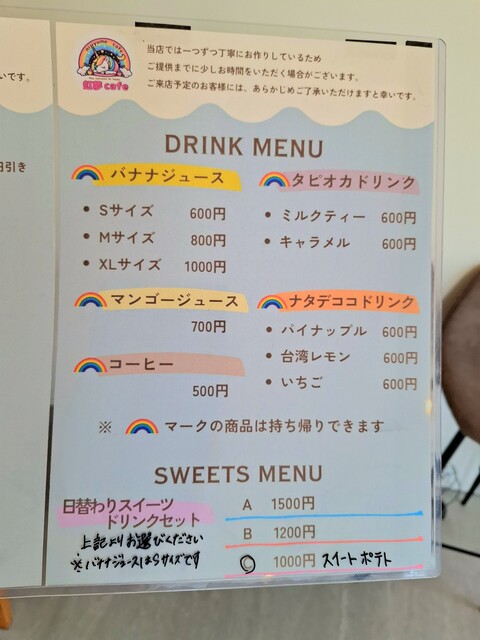 当店では一つずつ丁寧にお作りしているため
ご提供までに少しお時間をいただく場合がございます。
ご来店予定のお客様には、あらかじめご了承いただけますと幸いです。
虹夢 cafe
いです。
引き
DRINK MENU
バナナジュース
Sサイズ 600円
Mサイズ 800円
XLサイズ 1000円
マンゴージュース
700円
コーヒー
500円
タピオカドリンク
ミルクティー 600円
キャラメル 600円
ナタデココドリンク
パイナップル 600円
台湾レモン 600円
いちご 600円
※ マークの商品は持ち帰りできます
SWEETS MENU
日替わりスイーツ
ドリンクセット
上記よりお選びください
※バナナジュースはSサイズです
A 1500円
B 1200円
C 1000円 スイートポテト